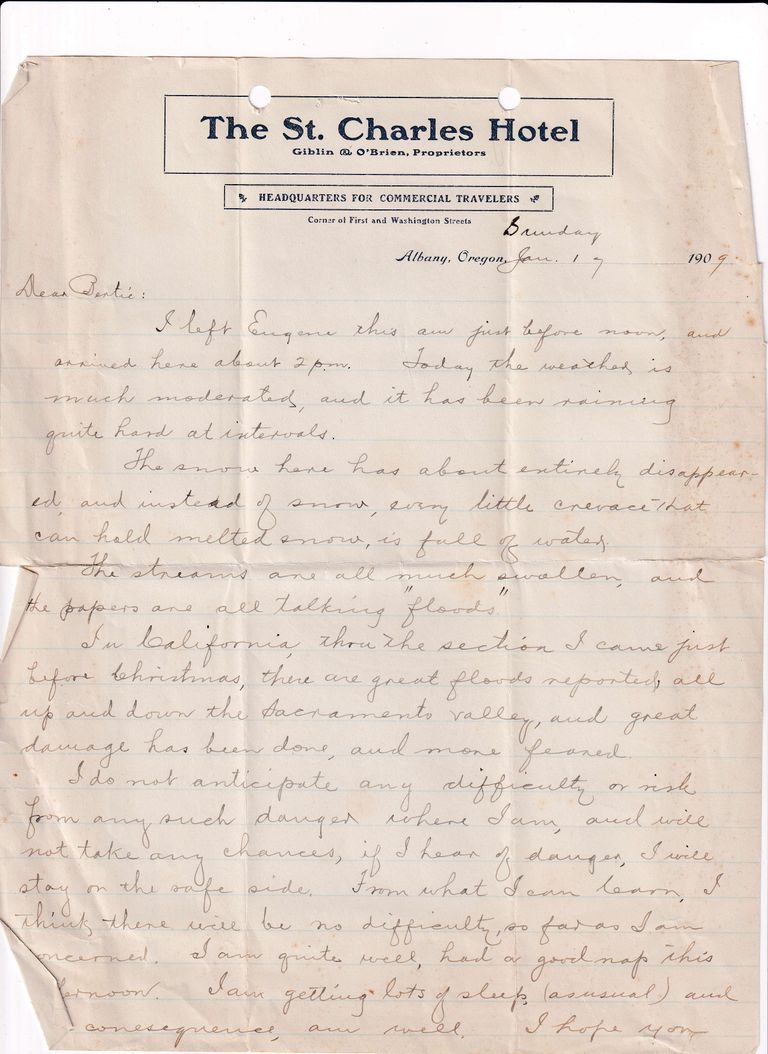 The St. Charles Hotel
Giblin & O'Brien, Proprietors
HEADQUARTERS FOR COMMERCIAL TRAVELERS
Corner of First and Washington Streets
Sunday
Albany, Oregon, Jan. 17 1909
Dear Bertie:
I left Eugene this am just before noon, and
arrived here about 2 p.m. Today the weather is
much moderated, and it has been raining
quite hard at intervals.
The snow here has about entirely disappear-
ed, and instead of snow, every little crevace that
can hold melted snow, is full of water,
The streams are all much swollen, and
the papers are all talking "floods"
In California, thru the section I came just
before Christmas, there are great floods reported, all
up and down the Sacramento valley, and great
damage has been done, and more feared.
I do not anticipate any difficulty or risk
from any such danger where I am, and will
not take any chances, if I hear of danger, I will
stay on the safe side. From what I can learn, I
think there will be no difficulty, so far as I am
oncerned. I am quite well, had a good nap this
ernoon. I am getting lots of sleep, (as usual) and
consequence, am well. I hope you